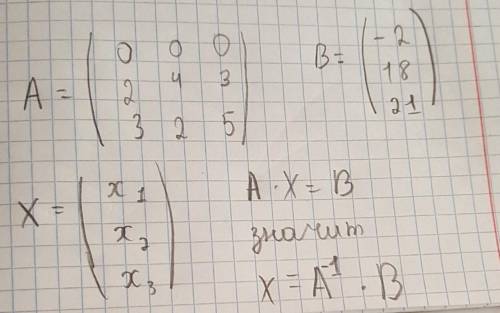 A = ( 0 0 0
2 4 3
3 2 5 )
B = ( -2
18
21 )
X = ( x₁
x₂
x₃ )
A · X = B
значит
X = A⁻¹ · B